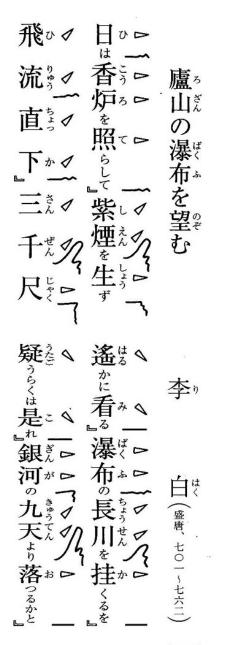 廬山の瀑布を望む 李 白(盛唐、七〇一～七六二)
日は香炉を照らして『紫煙を生ず
遙かに看る『瀑布の長川を挂くるを『
飛流直下『三千尺
疑うらくは是れ『銀河の九天より落つるかと『